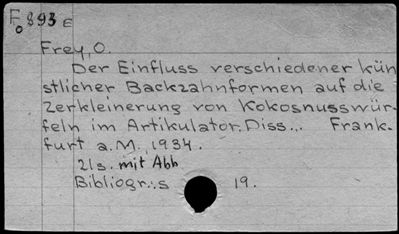 Fo 893 E
Frey, O.
Der Einfluss verschiedener kün
stlicher Backzahnformen auf die
Zerkleinerung von Kokosnusswür-
feln im Artikulator. Diss... Frank-
furt a.M., 1934.
21s. mit Abb
Bibliogr.:s 19.